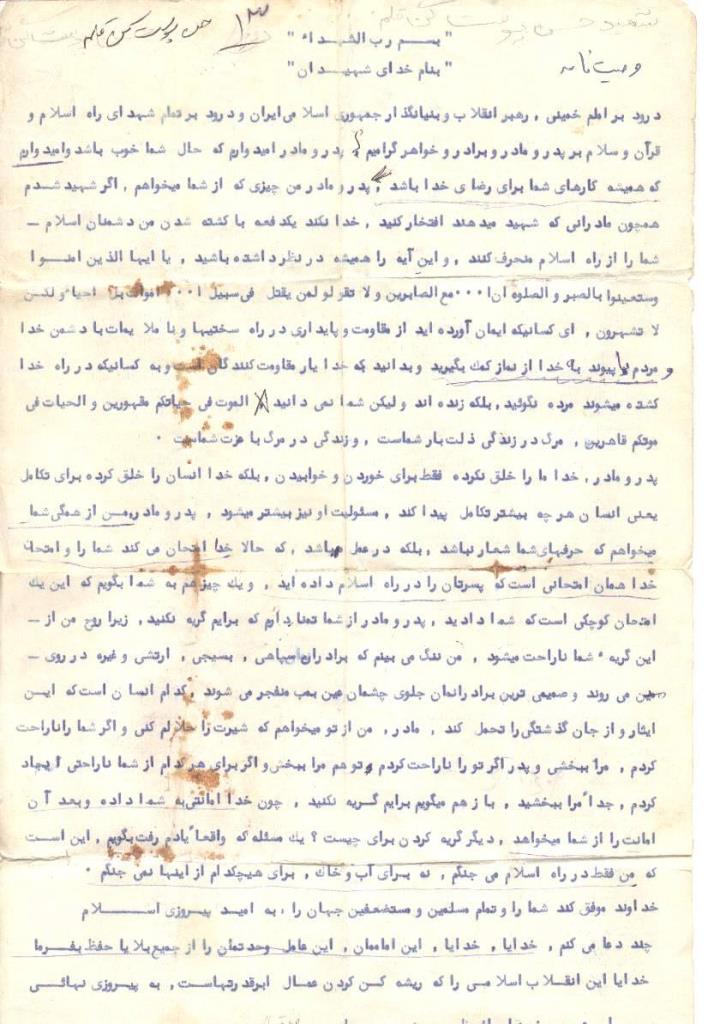 شهید حسن پوست کن قلم
حسن پوست کن قلم
۱۳
وصیت نامه
" بسم رب الشهداء "
" بنام خدای شهیدان "
درود بر امام خمینی , رهبر انقلاب و بنیانگذار جمهوری اسلامی ایران و درود بر تمام شهدای راه اسلام و
قرآن و سلام بر پدر و مادر و برادر و خواهر گرامیم پدر و مادر امیدوارم که حال شما خوب باشد وامیدوارم
که همیشه کارهای شما برای رضای خدا باشد , پدر و مادر من چیزی که از شما میخواهم , اگر شهید شدم
همچون مادرانی که شهید میدهند افتخار کنید , خدا نکند یکدفعه با کشته شدن من دشمنان اسلام -
شما را از راه اسلام منحرف کنند , و این آیه را همیشه در نظر داشته باشید , یا ایها الذین امنوا
وستعینوا بالصبر و الصلوه ان ا ... مع الصابرین و لا تقولو لمن یقتل فی سبیل ا ... اموات بل احیاء و لکن
لا تشهرون , ای کسانیکه ایمان آورده اید از مقاومت و پایداری در راه سختیها و با ملایمات با دشمن خدا
و مردم با پیوند به خدا از نماز کمک بگیرید و بدانید که خدا یار مقاومت کنندگان است و به کسانیکه در راه خدا
کشته میشوند مرده نگوئید , بلکه زنده اند و لیکن شما نمی دانید الموت فی حیاتکم مقهورین و الحیات فی
موتکم قاهرین , مرگ در زندگی ذلت بار شماست , و زندگی در مرگ با عزت شماست .
پدر و مادر , خدا ما را خلق نکرده فقط برای خوردن و خوابیدن , بلکه خدا انسان را خلق کرده برای تکامل
یعنی انسان هر چه بیشتر تکامل پیدا کند , مسئولیت او نیز بیشتر میشود , پدر و مادر من از همگی شما
میخواهم که حرفهای شما شعار نباشد , بلکه در عمل باشد , که حالا خدا امتحان می کند شما را و امتحان
خدا همان امتحانی است که پسرتان را در راه اسلام داده اید , و یک چیز هم به شما بگویم که این یک
امتحان کوچکی است که شما دادید , پدر و مادر از شما تمنا دارم که برایم گریه نکنید , زیرا روح من از -
این گریه ء شما ناراحت میشود , من ننگ می بینم که برادران سپاهی , بسیجی , ارتشی و غیره در روی -
مین می روند و صمیمی ترین برادرانمان جلوی چشمان مین بمب منفجر می شوند , کدام انسان است که این
ایثار و از جان گذشتگی را تحمل کند , مادر , من از تو میخواهم که شیرت را حلالم کنی و اگر شما را ناراحت
کردم , مرا ببخشی و پدر اگر تو را ناراحت کردم تو هم مرا ببخش و اگر برای هر کدام از شما ناراحتی ایجاد
کردم , جداً مرا ببخشید , باز هم میگویم برایم گریه نکنید , چون خدا امانتی به شما داده و بعد آن
امانت را از شما میخواهد , دیگر گریه کردن برای چیست ؟ یک مسئله که واقعاً یادم رفت بگویم , این است
که من فقط در راه اسلام می جنگم , نه برای آب و خاک , برای هیچکدام از اینها نمی جنگم .
خداوند موفق کند شما را و تمام مسلمین و مستضعفین جهان را , به امید پیروزی اسلام
چند دعا می کنم , خدایا , خدایا , این اماممان , این عامل وحدتمان را از جمیع بلایا حفظ بفرما
خدایا این انقلاب اسلامی را که ریشه کن کردن عمال ابرقدرتهاست , به پیروزی نهائی